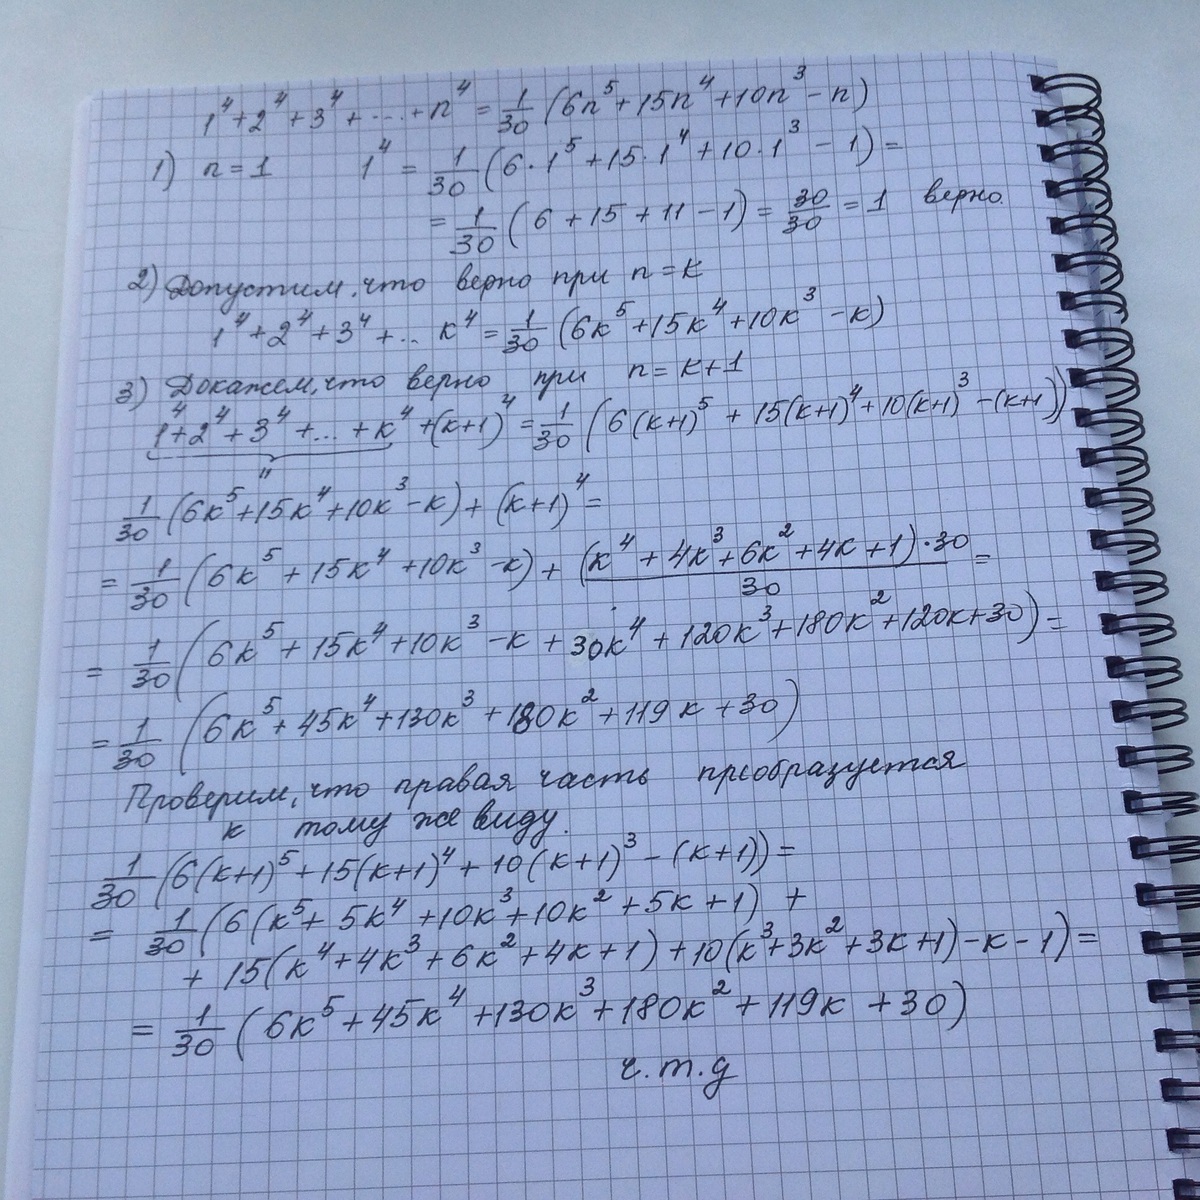 1⁴+2⁴+3⁴+...+n⁴ = 1/30 (6n⁵+15n⁴+10n³-n)
1) n=1 1⁴ = 1/30 (6·1⁵+15·1⁴+10·1³-1) =
= 1/30 (6+15+11-1) = 30/30 = 1 верно.
2) Допустим, что верно при n=k
1⁴+2⁴+3⁴+.. k⁴ = 1/30 (6k⁵+15k⁴+10k³-k)
3) Докажем, что верно при n=k+1
1⁴+2⁴+3⁴+...+k⁴+(k+1)⁴ = 1/30 (6(k+1)⁵+15(k+1)⁴+10(k+1)³-(k+1))
"
1/30 (6k⁵+15k⁴+10k³-k)+(k+1)⁴=
= 1/30 (6k⁵+15k⁴+10k³-k) + (k⁴+4k³+6k²+4k+1)·30/30 =
= 1/30 (6k⁵+15k⁴+10k³-k+30k⁴+120k³+180k²+120k+30) =
= 1/30 (6k⁵+45k⁴+130k³+180k²+119k+30)
Проверим, что правая часть преобразуется
к тому же виду.
1/30 (6(k+1)⁵+15(k+1)⁴+10(k+1)³-(k+1)) =
= 1/30 (6(k⁵+5k⁴+10k³+10k²+5k+1) +
+ 15(k⁴+4k³+6k²+4k+1)+10(k³+3k²+3k+1)-k-1) =
= 1/30 (6k⁵+45k⁴+130k³+180k²+119k+30)
ч.т.д